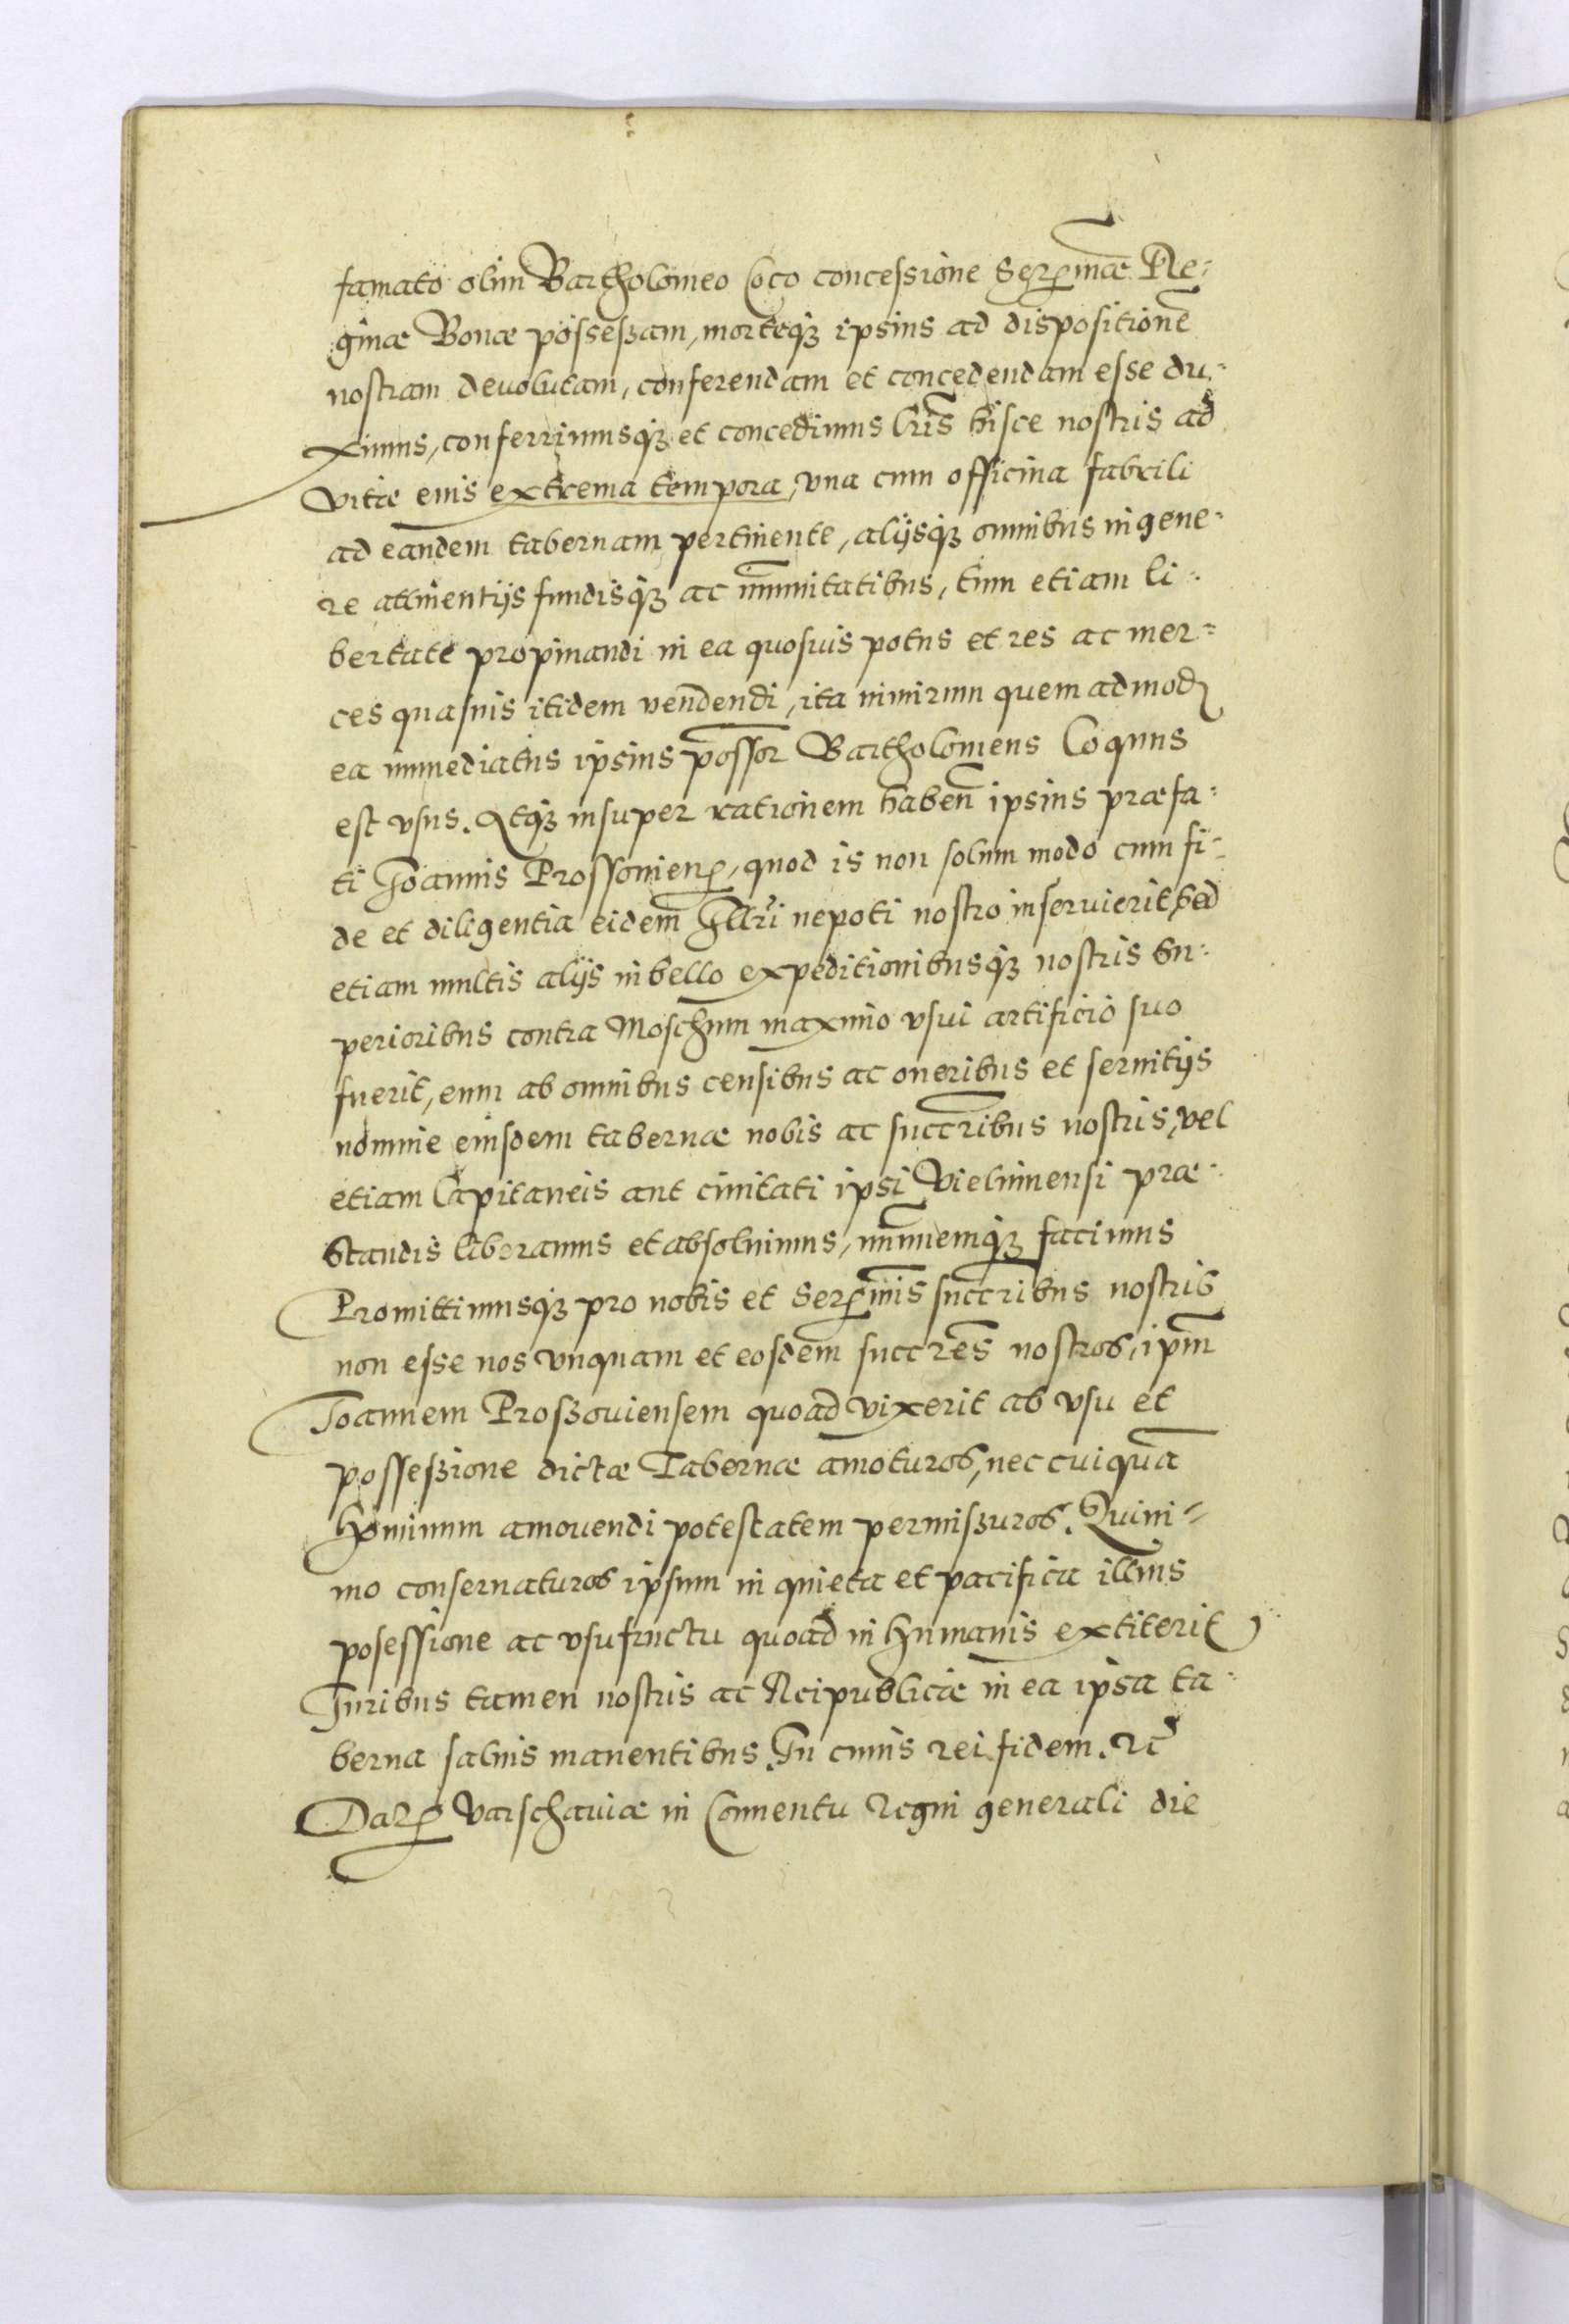 famato olim Bartholomeo Coco concessione Serenmae Re=
ginae Bonae possessam, morteq3 ipsius ad dispositionē
nostram deuolutam, conferendam et concedendam esse du=
ximus, conferrimusq3 et concedimus lr̄is hisce nostris ad
vitae eius extrema tempora, vna cum officina fabrili
ad eandem tabernam pertinente, alijsq3 omnibus in gene=
re attinentijs fundisq3 ac im̄unitatibus, tum etiam li=
bertate propinandi in ea quosuis potus et res ac mer=
ces quasuis itidem vendendi, ita nimirum quem ad mod
ea immediatus ipsius poss̄or Bartholomeus Coquus
est vsus. Atq3 insuper rationem haben̄ ipsius praefa=
ti Joannis Prossouien, quod is non solum modo cum fi=
de et diligentia eidem Illr̄i nepoti nostro inseruierit, sed
etiam multis alijs in bello expeditionibusq3 nostris su=
perioribus contra Moschum maximo vsui artificio suo
fuerit, eum ab omnibus censibus ac oneribus et seruitijs
nomine eiusdem tabernae nobis ac succr̄ibus nostris, vel
etiam Capitaneis aut ciuitati ipsi Vieluinensi prae=
standis liberamus et absoluimus, im̄unemq3 facimus
Promittimusq3 pro nobis et Serenmis succr̄ibus nostris
non esse nos vnquam et eosdem succr̄es nostros, ip̄m
Joannem Proszouiensem quoad vixerit ab vsu et
possessione dictae Tabernae amoturos, nec cuiquā
Hominum amouendi potestatem permissuros. Quini=
mo conseruaturos ipsum in quieta et pacifica illius
posessione ac vsufructu quoad in Humanis extiterit
Juribus tamen nostris ac Reipublicae in ea ipsa ta=
berna saluis manentibus. In cuius rei fidem. &c
Dat Varschauiae in Conuentu Regni generali die